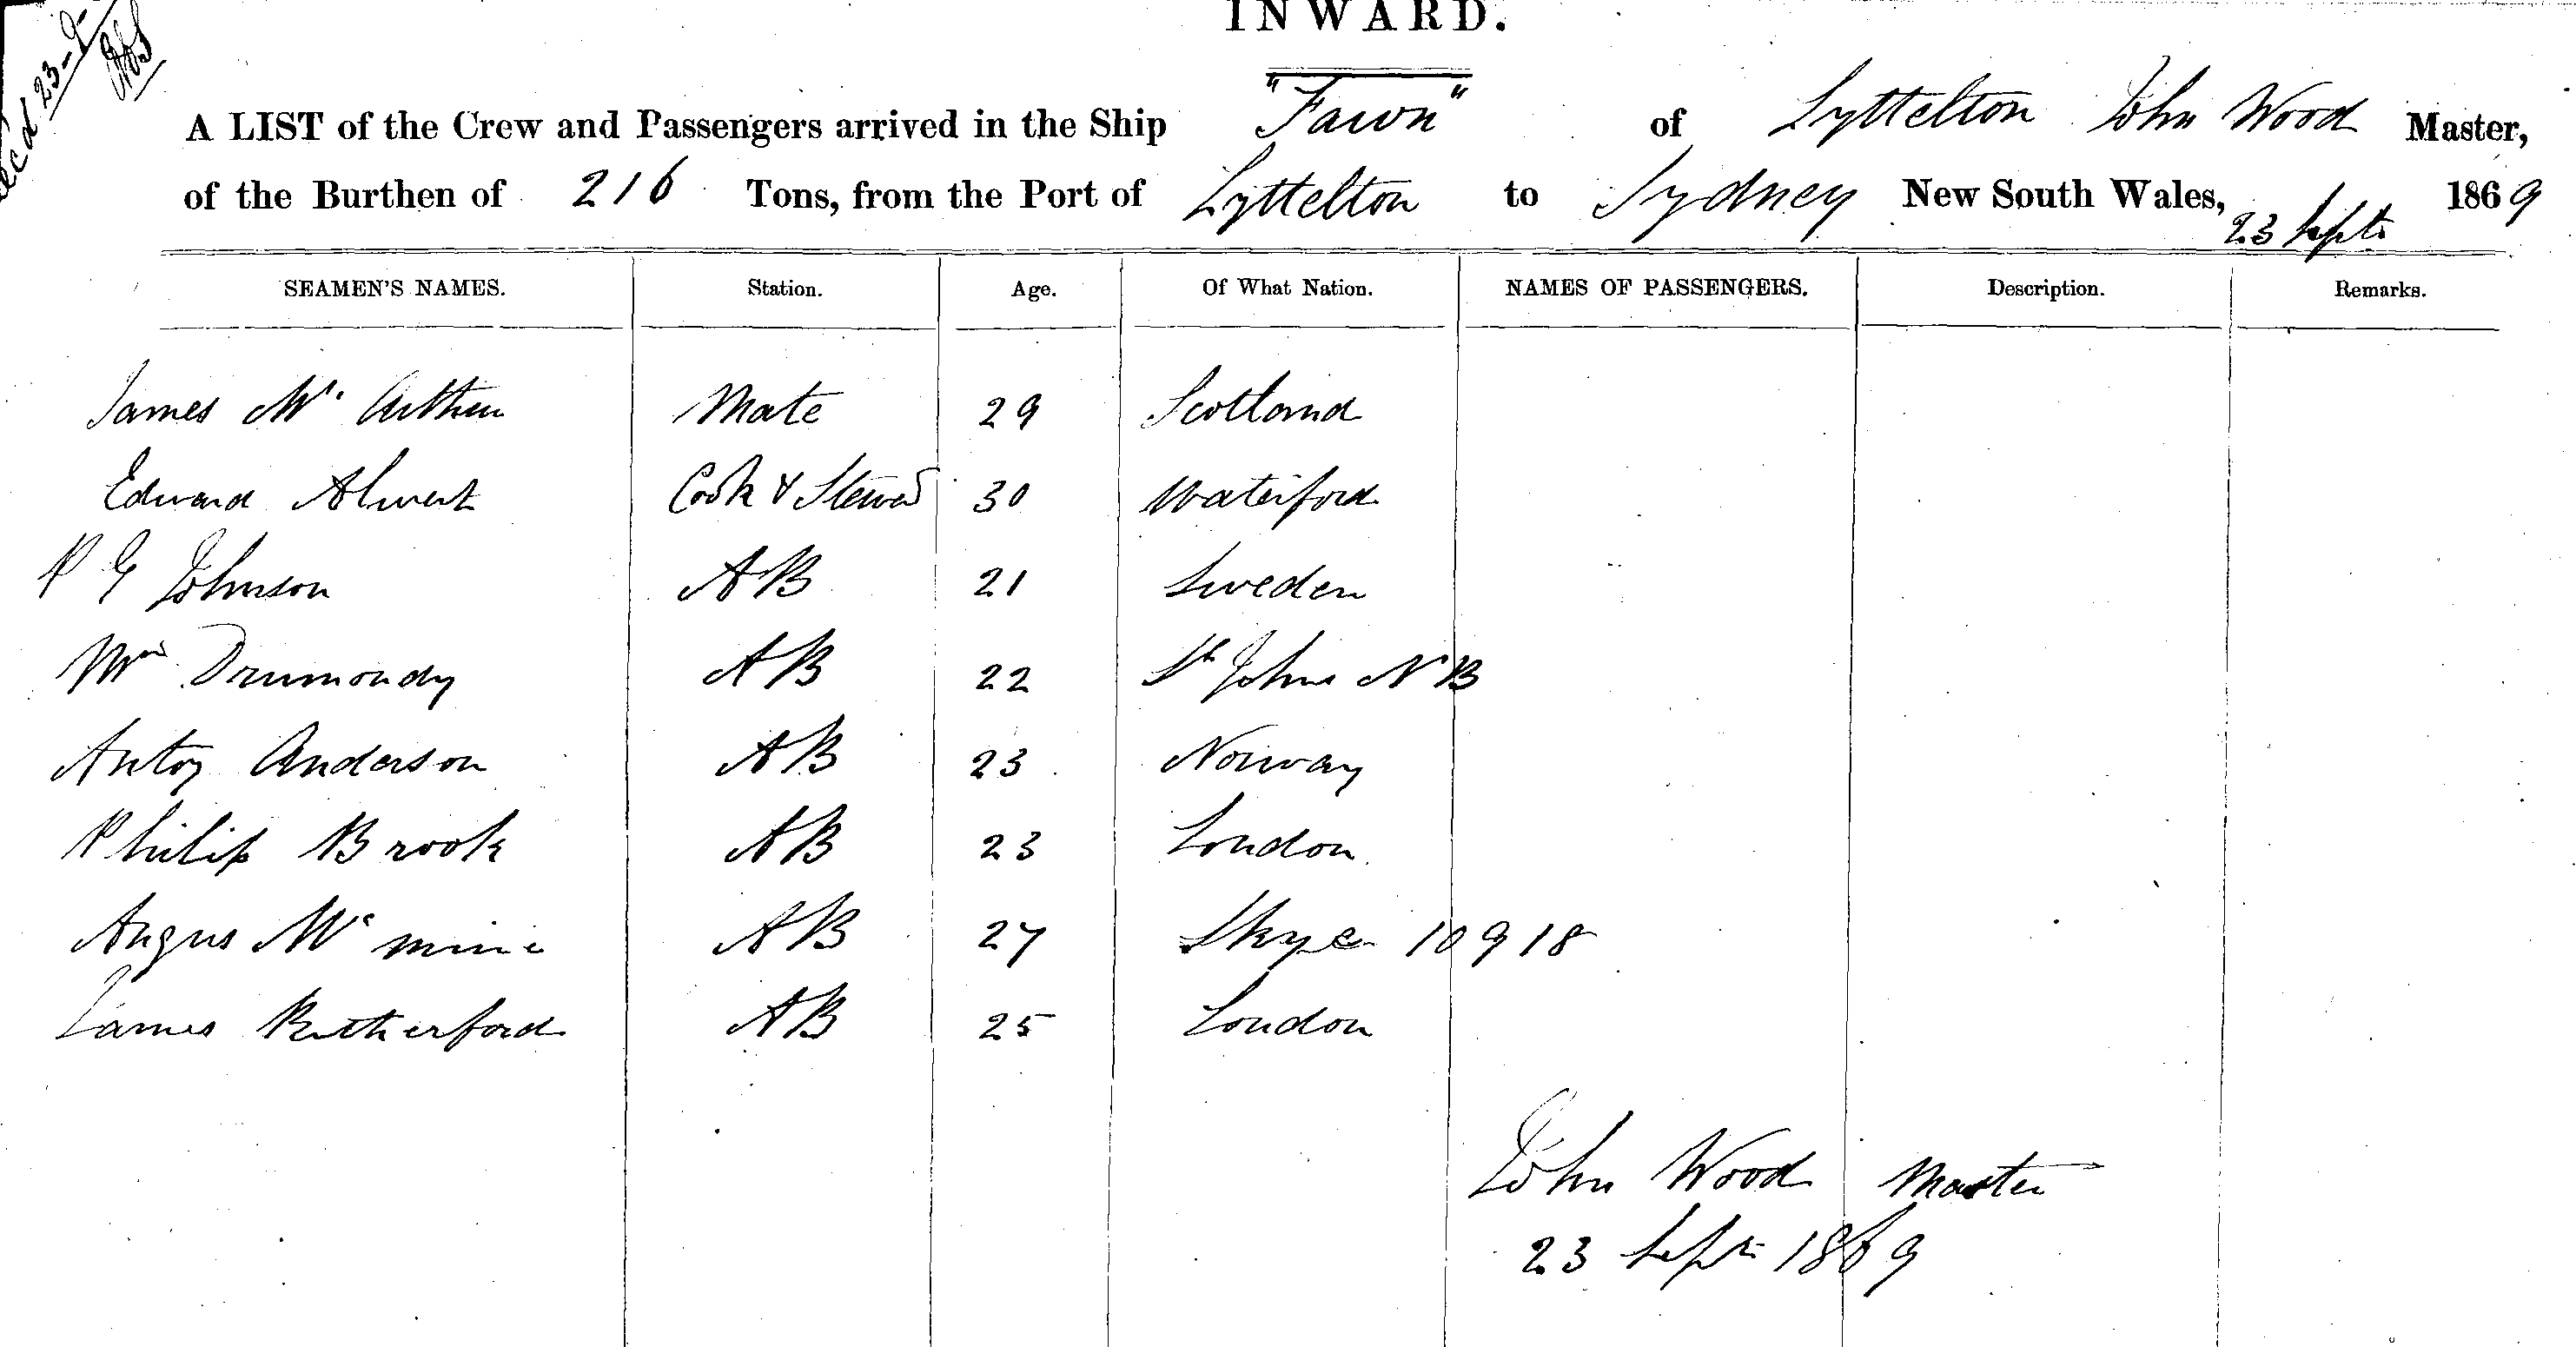 INWARD.
23-9-
A LIST of the Crew and Passengers arrived in the Ship "Fawn" of Lyttelton John Wood Master,
of the Burthen of 216 Tons, from the Port of Lyttelton to Sydney New South Wales, 23 Septr 1869
SEAMEN'S NAMES. Station. Age. Of What Nation. NAMES OF PASSENGERS. Description. Remarks.
James Mc Arthur Mate 29 Scotland
Edward Cook & Steward 30 Waterford
P G Johnson AB 21 Sweden
Wm Drumondy AB 22 St Johns N B
Antoy Anderson AB 23 Norway
Philip Brook AB 23 London
Angus Mc AB 27 Skye 10918
James Rutherford AB 25 London
John Wood Master
23 Septr 1869